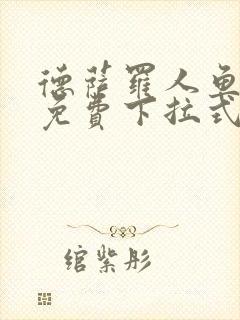 德萨罗人鱼
免费下拉式
绾紫彤